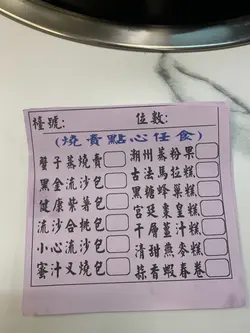 檯號: 位數:
(燒賣點心任食)
蟹子蒸燒賣 潮州蒸粉果
黑金流沙包 古法馬拉糕
健康紫薯包 黑糖蜂巢糕
流沙合桃包 宮廷棗皇糕
小心流沙包 千層薑汁糕
蜜汁叉燒包 清甜燕麥糕
蒜香蝦春卷